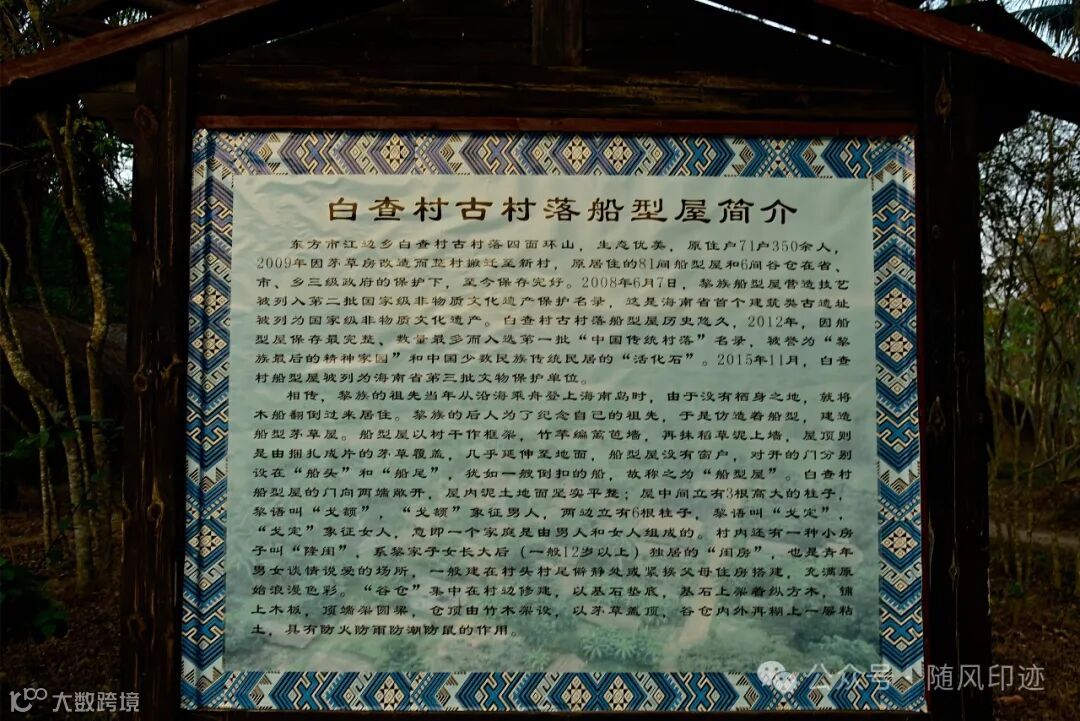 白查村古村落船型屋简介
东方市江边乡白查村古村落四面环山，生态优美，原住户71户350余人，
2009年因茅草房改造而整村搬迁至新村，原居住的81间船型屋和6间谷仓在省、
市、乡三级政府的保护下，至今保存完好。2008年6月7日，黎族船型屋营造技艺
被列入第二批国家级非物质文化遗产保护名录，这是海南省首个建筑类古遗址
被列为国家级非物质文化遗产。白查村古村落船型屋历史悠久，2012年，因船
型屋保存最完整、数量最多而入选第一批“中国传统村落”名录，被誉为“黎
族最后的精神家园”和中国少数民族传统民居的“活化石”。2015年11月，白查
村船型屋被列为海南省第三批文物保护单位。
相传，黎族的祖先当年从沿海乘舟登上海南岛时，由于没有栖身之地，就将
木船翻倒过来居住。黎族的后人为了纪念自己的祖先，于是仿造着船型，建造
船型茅草屋。船型屋以树干作框架，竹竿编篱笆墙，再抹稻草泥上墙，屋顶则
是由捆扎成片的茅草覆盖，几乎延伸至地面，船型屋没有窗户，对开的门分别
设在“船头”和“船尾”，犹如一艘倒扣的船，故称之为“船型屋”。白查村
船型屋的门向两端敞开，屋内泥土地面坚实平整；屋中间立有3根高大的柱子，
黎语叫“戈额”，“戈额”象征男人，两边立有6根柱子，黎语叫“戈定”，
“戈定”象征女人，意即一个家庭是由男人和女人组成的。村内还有一种小房
子叫“隆闺”，系黎家子女长大后（一般12岁以上）独居的“闺房”，也是青年
男女谈情说爱的场所，一般建在村头村尾僻静处或紧挨父母住房搭建，充满原
始浪漫色彩。“谷仓”集中在村边修建，以基石垫底，基石上架着纵方木，铺
上木板，顶端架圆梁，仓顶由竹木架设，以茅草盖顶，谷仓内外再糊上一层粘
土，具有防火防雨防潮防鼠的作用。
公众号·随风印迹
大数跨境